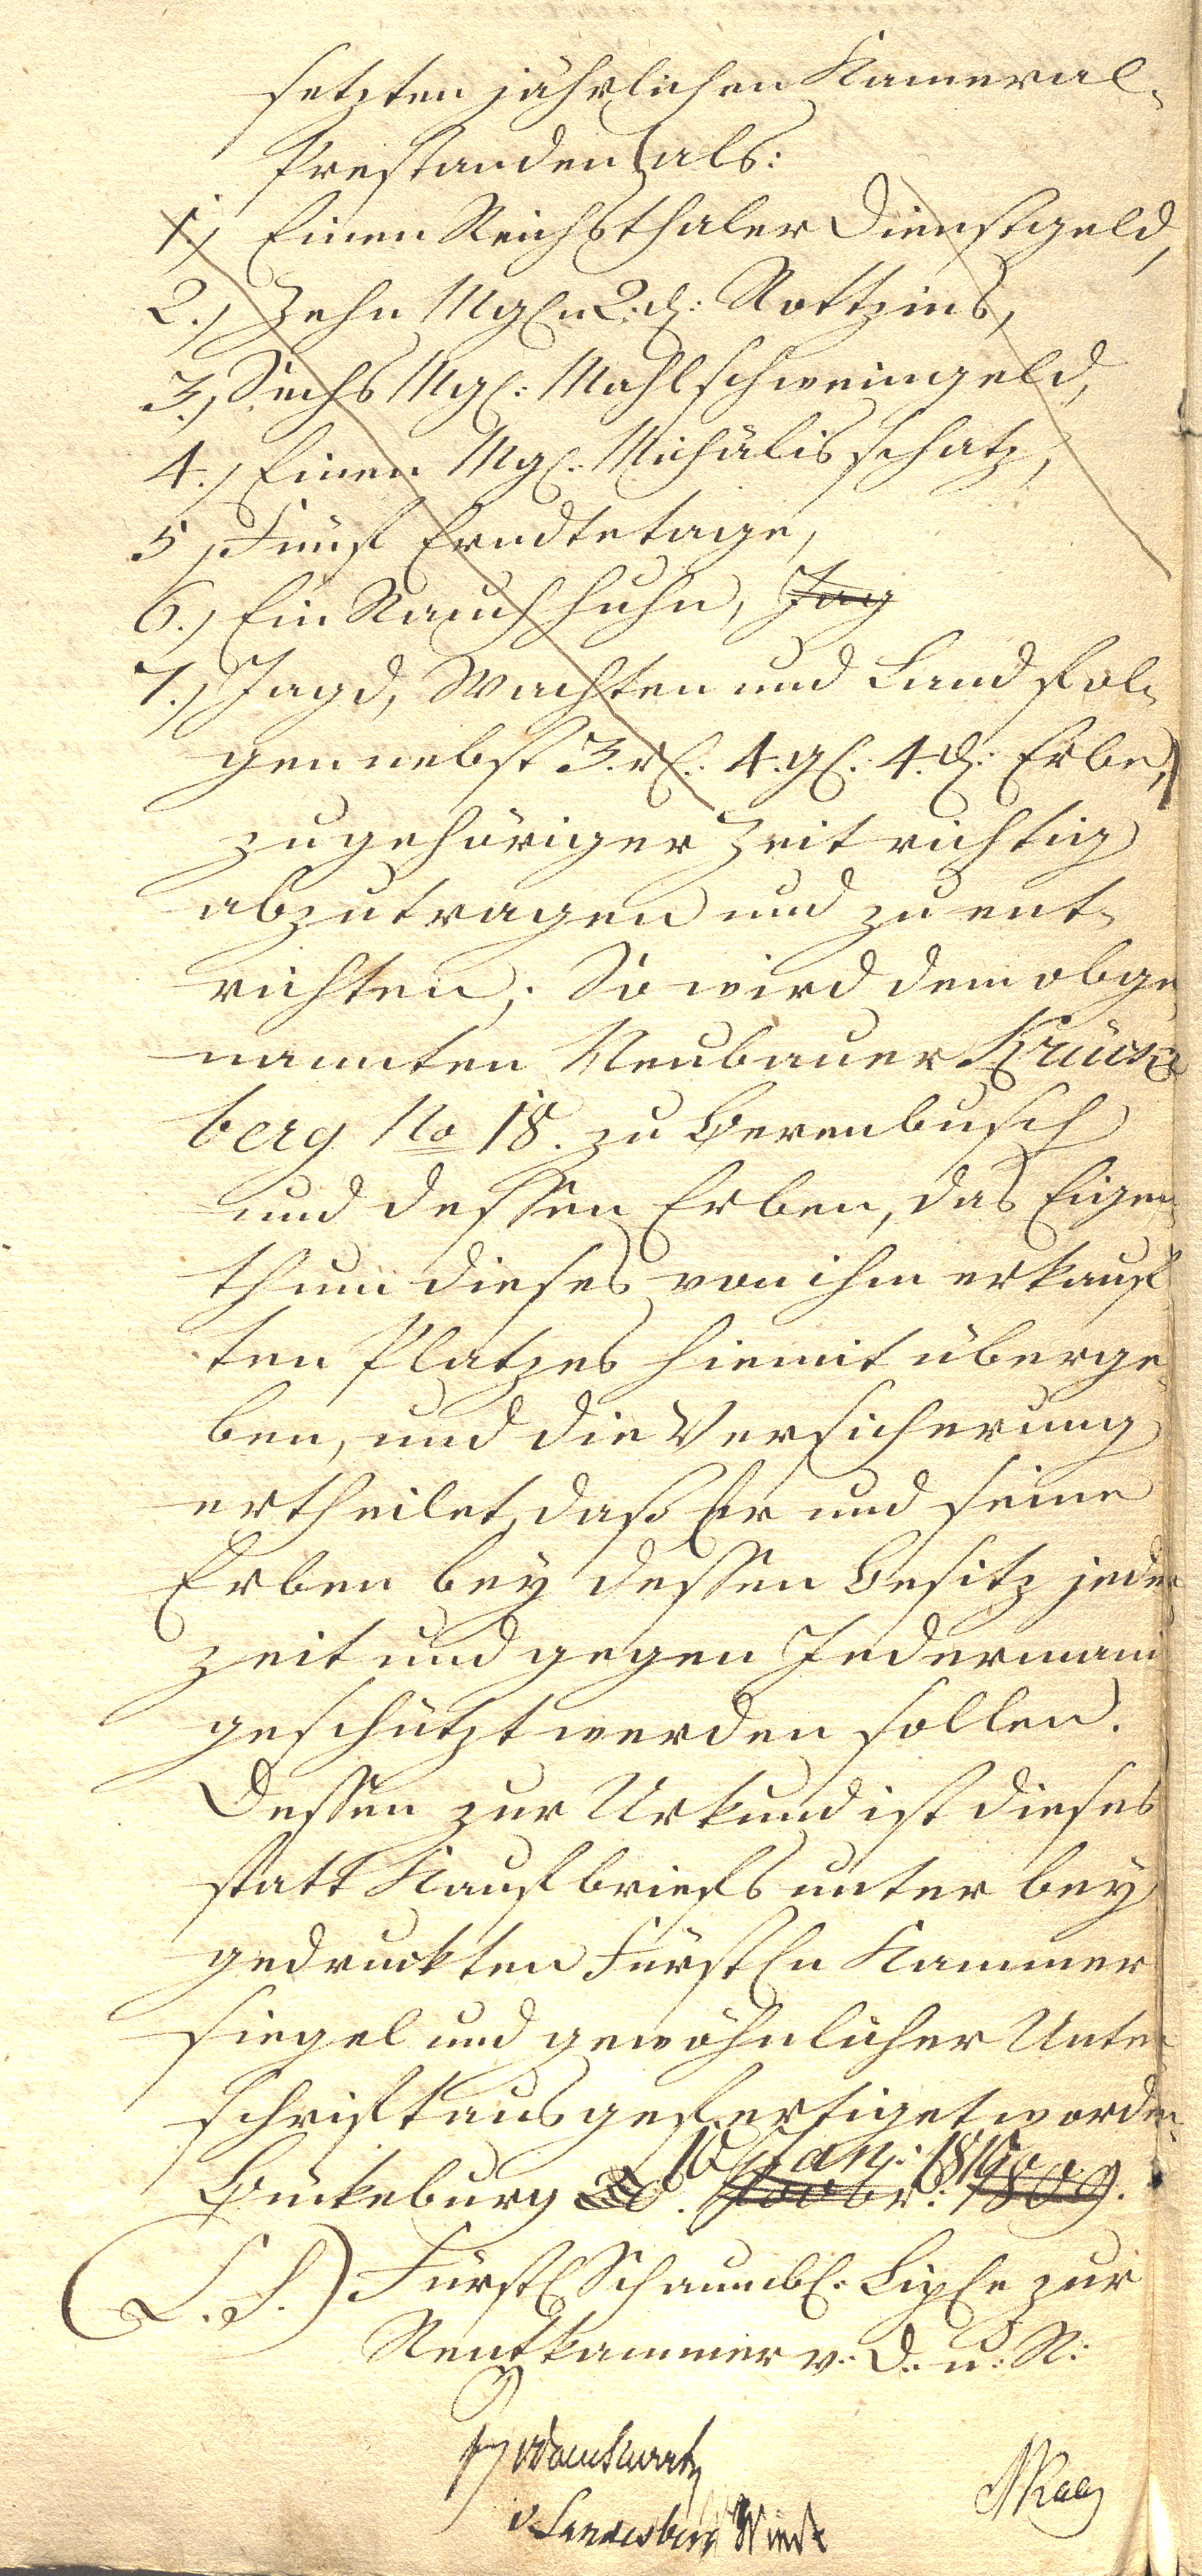 setzten jährlichen Kameral-
Prestanden als:
1.) Einen Reichsthaler Dienstgeld,
2.) Zehn Mgl. 2. d: Rottzins,
3.) Sechs Mgl: Mahlschweingeld,
4.) Einen Mgl: Michälis schatz,
5.) Fünf Erndtetage,
6.) Ein Rauchhuhn, Jag
7.) Jagd, Wachten und Landfol-
gen nebst 3. rl. 4. gl. 4. d: Erbe,)
zu gehöriger Zeit richtig
abzutragen und zu ent-
richten; So wird dem obge
nannten Neubauer Krück-
berg No 18. zu Berenbusch
und dessen Erben, das Eigen
thum dieses von ihm erkauf
ten Platzes hiemit überge-
ben, und die Versicherung
ertheilet, daß Er und seine
Erben bey dessen Besitz jeder
zeit und gegen Jedermann
geschützt werden sollen.
Dessen zur Urkund ist dieses
statt Kaufbriefs unter bey
gedruckten Fürstln Kammer
siegel und gewöhnlicher Unter
schrift ausgefertiget worden.
10 Janr: 1810.
Bückeburg d. Novbr: 1809.
(L. S.) Fürstl Schaumbl: Lippe zur
Rentkammer v: D. u: R:
v Landesberg